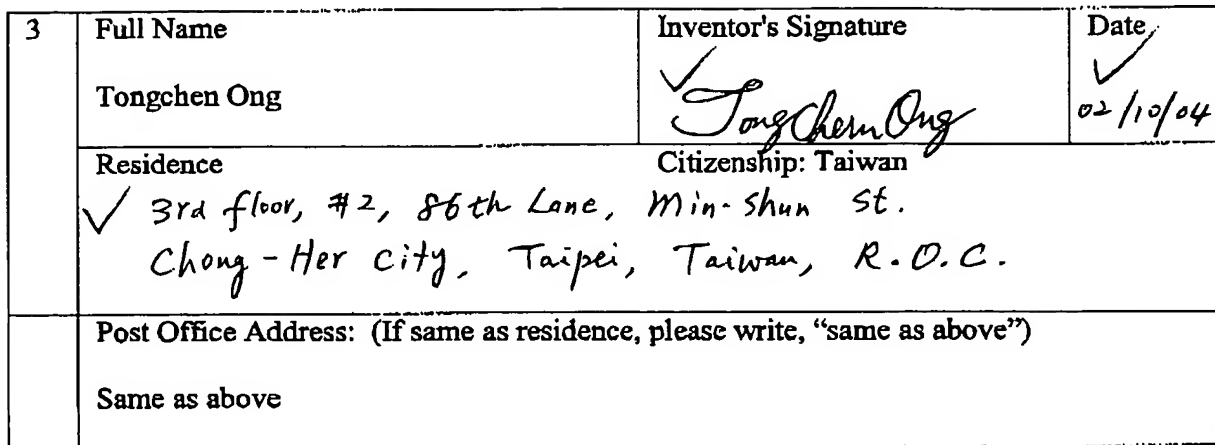 3 Full Name Inventor's Signature Date
Tongchen Ong TongChern Ong 02/10/04
Residence Citizenship: Taiwan
3rd floor, #2, 86th Lane, Min-Shun St.
Chong-Her City, Taipei, Taiwan, R.O.C.
Post Office Address: (If same as residence, please write, “same as above”)
Same as above